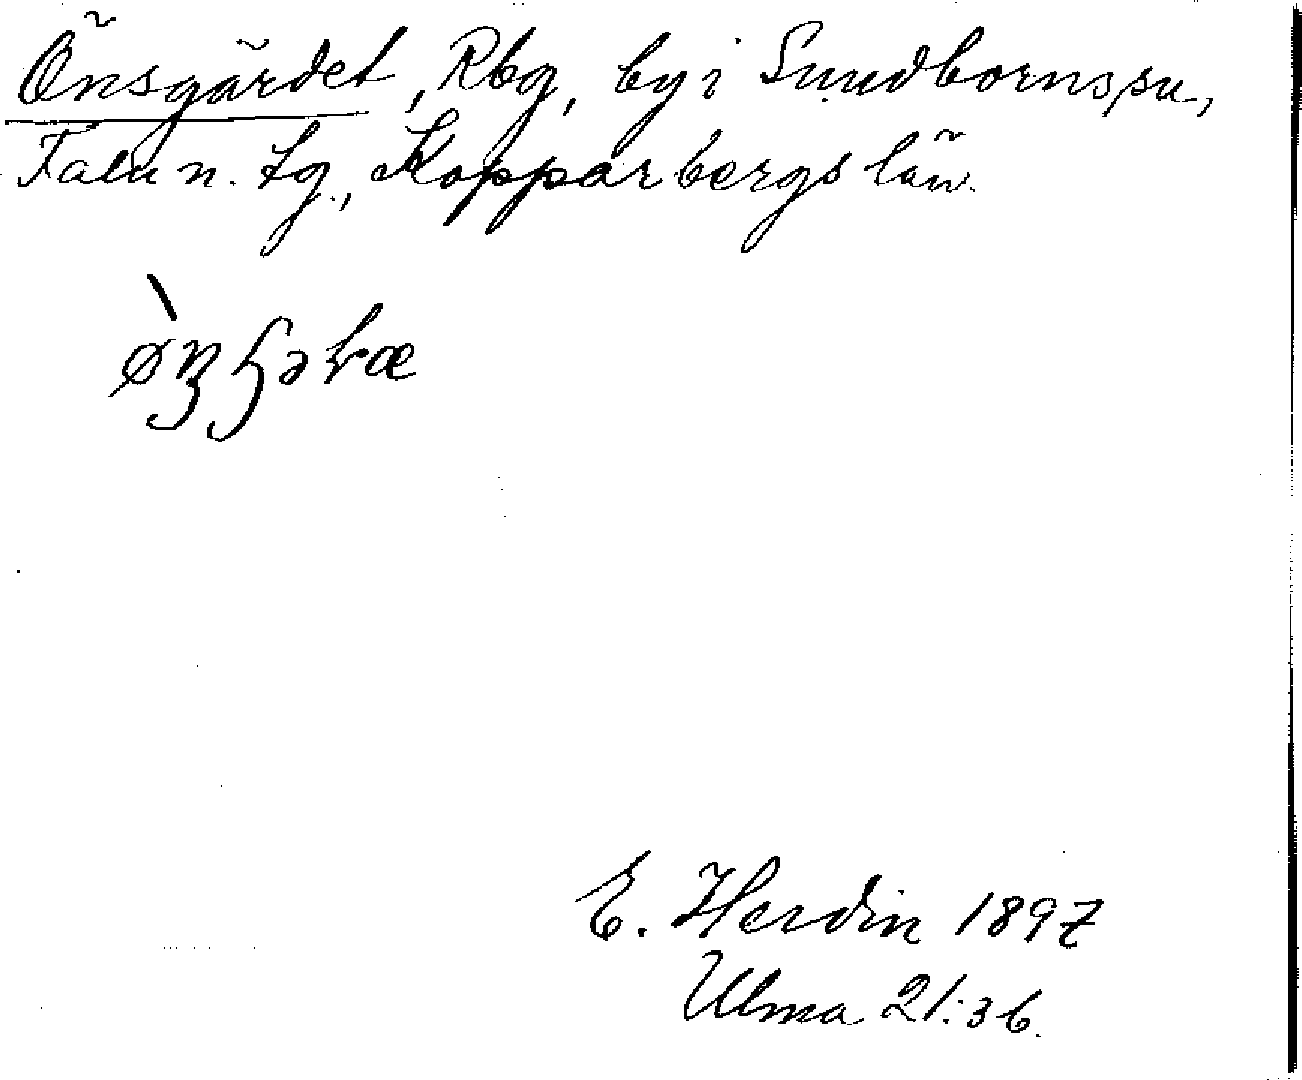 Önsgärdet, Rbg, by i Sundborns sn,
Falu n. tg., Kopparbergs län.
E. Herdin 1897
Ulma 21:36.